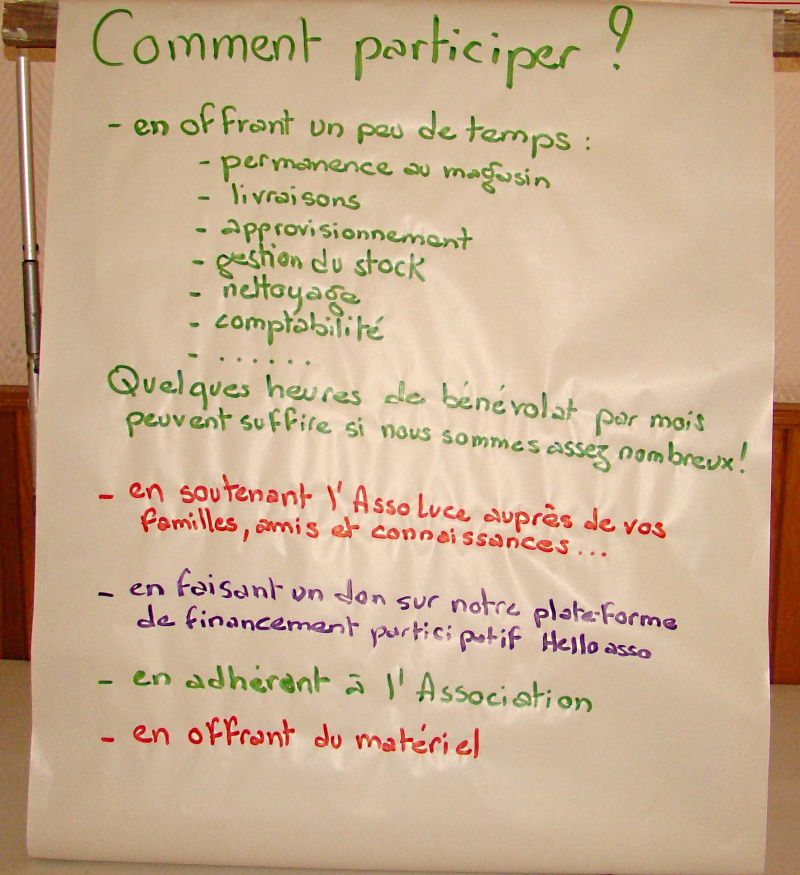 Comment participer ?
- en offrant un peu de temps :
- permanence au magasin
- livraisons
- approvisionnement
- gestion du stock
- nettoyage
- comptabilité
- ......
Quelques heures de bénévolat par mois
peuvent suffire si nous sommes assez nombreux!
- en soutenant l'Asso Luce auprès de vos
familles, amis et connaissances...
- en faisant un don sur notre plate-forme
de financement participatif Helloasso
- en adhérant à l'Association
- en offrant du matériel